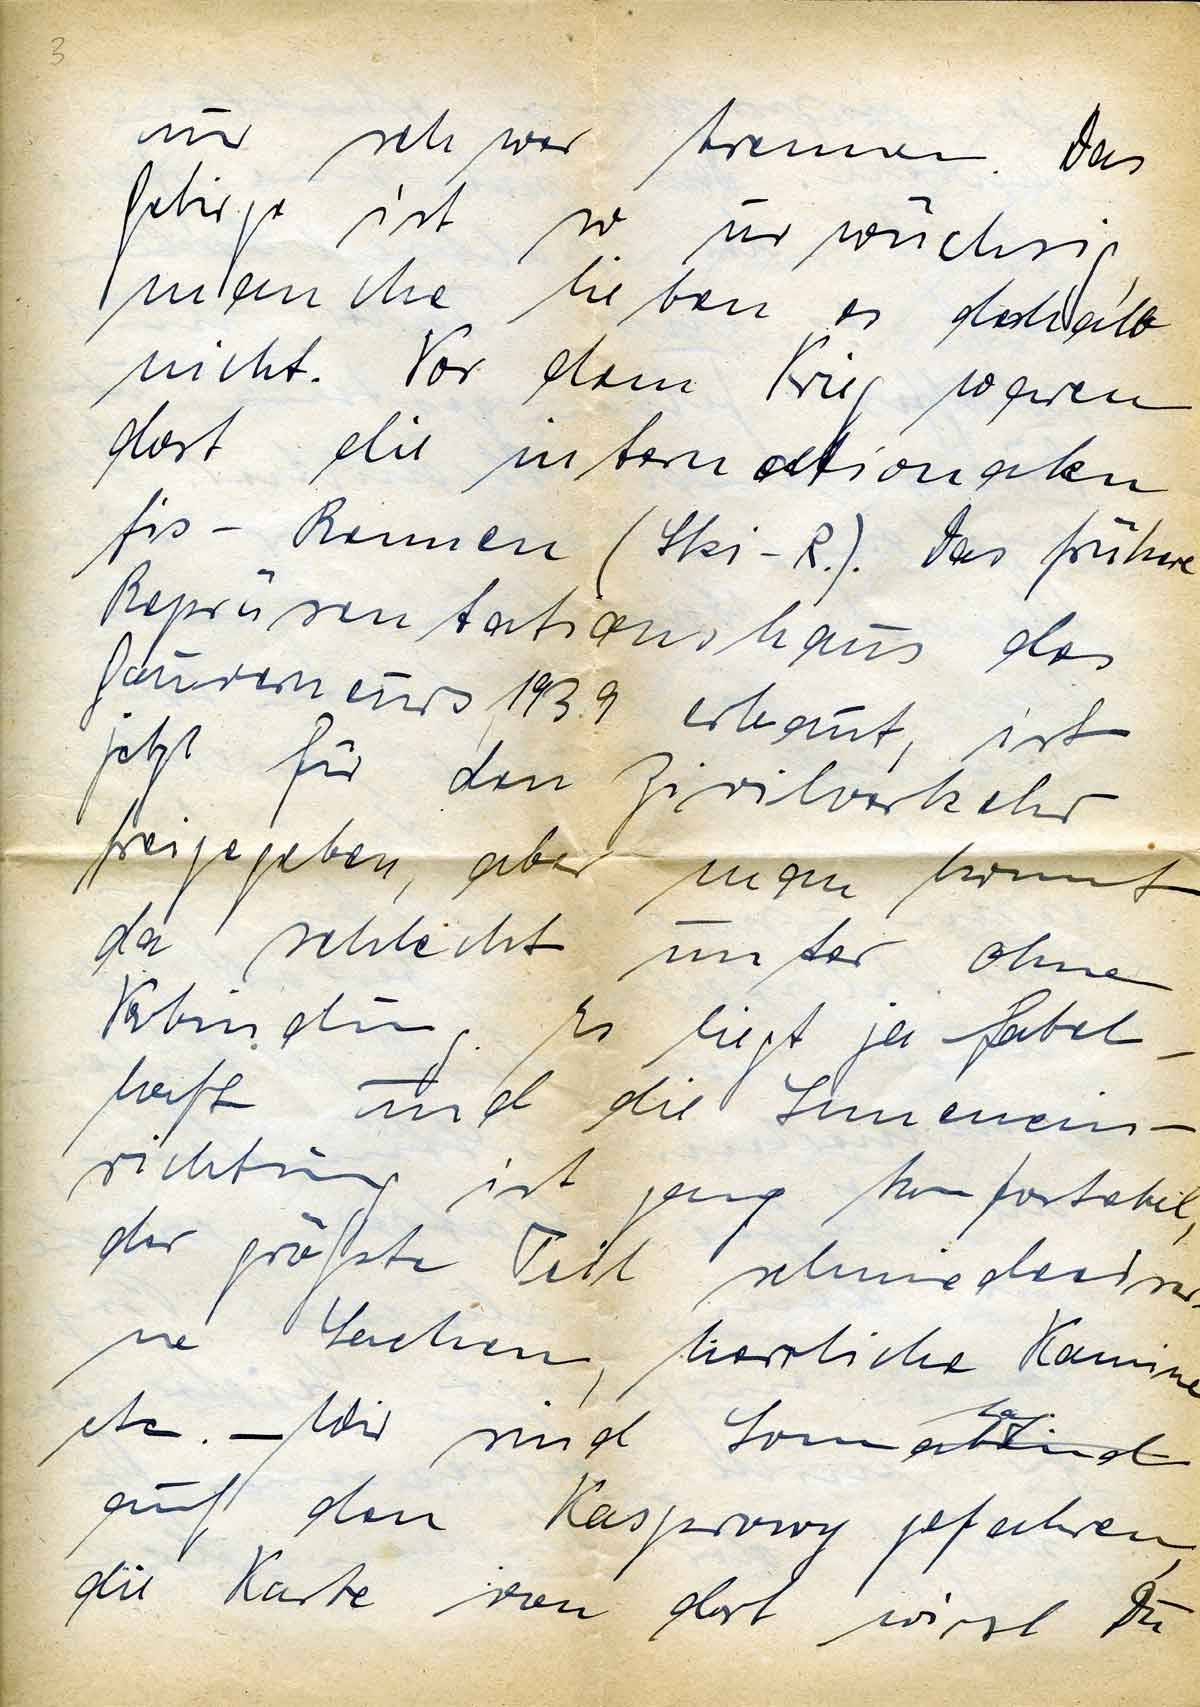 3
nur schwer trennen. Das
Gebirge ist so urwüchsig,
manche lieben es deshalb
nicht. Vor dem Krieg waren
dort die internationalen
Fis - Rennen (Ski - R.). Das frühere
Repräsentationshaus des
Gouverneurs, 1939 erbaut, ist
jetzt für den Zivilverkehr
freigegeben, aber man kommt
da schlecht unter ohne
Verbindung. Es liegt ja fabel-
haft und die Innenein-
richtung ist ganz komfortabel,
der größte Teil schmiedeeiser-
ne Sachen, herrliche Kamine
etc. – Wir sind Sonnabend
auf den Kasprowy gefahren,
die Karte von dort wirst Du